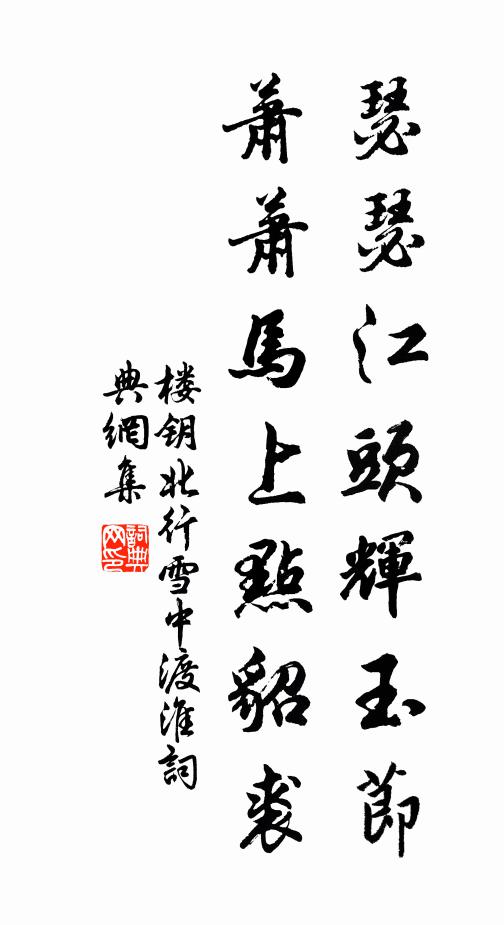 瑟瑟江頭輝玉節
蕭蕭馬上點貂裘
楼钥北行雪中渡淮詞
典網集
詞典
网印